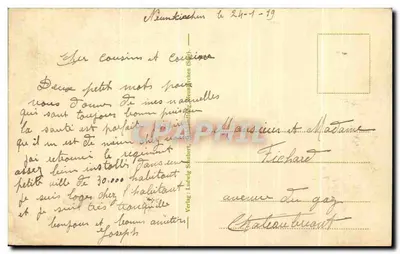 Neunkirchen le 24-1-19
Cher cousins et cousine
Deux petit mots pour
vous donner de mes nouvelles
qui sont toujours bonnes puisque
la santé est parfaite
qu'il en est de même chez
j'ai retourné le régiment
assez bien installé dans une
petite ville de 30.000 habitant
je suis loger chez l'habitant
et je suis très tranquille
bonjour et bonne amitiers
Joseph
Verlag: Ludwig
CPAPHIL
Monsieur et Madame
Richard
avenue du gaz
Chateaubriant